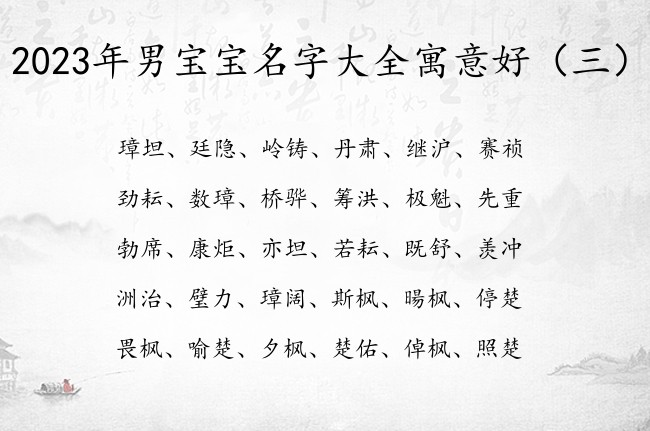 2023年男宝宝名字大全寓意好（三）
璋坦、廷隐、岭铸、丹肃、继沪、赛祯
劲耘、数璋、桥骅、筹洪、极魁、先重
勃席、康炬、亦坦、若耘、既舒、羡冲
洲治、璧力、璋阔、斯枫、暘枫、停楚
畏枫、喻楚、夕枫、楚佑、倬枫、照楚